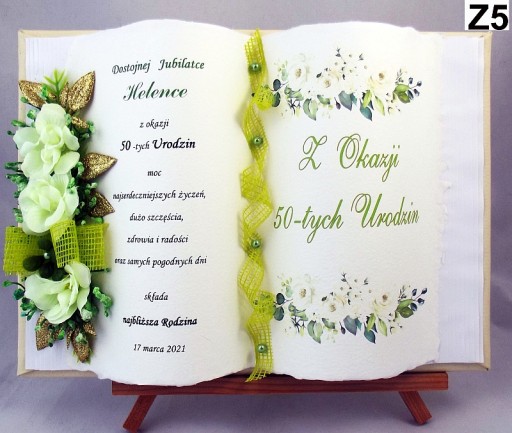 Z5
Dostojnej Jubilatce
Helence
z okazji
50 -tych Urodzin
moc
najserdeczniejszych życzeń,
dużo szczęścia,
zdrowia i radości
oraz samych pogodnych dni
składa
najbliższa Rodzina
17 marca 2021
Z Okazji
50-tych Urodzin